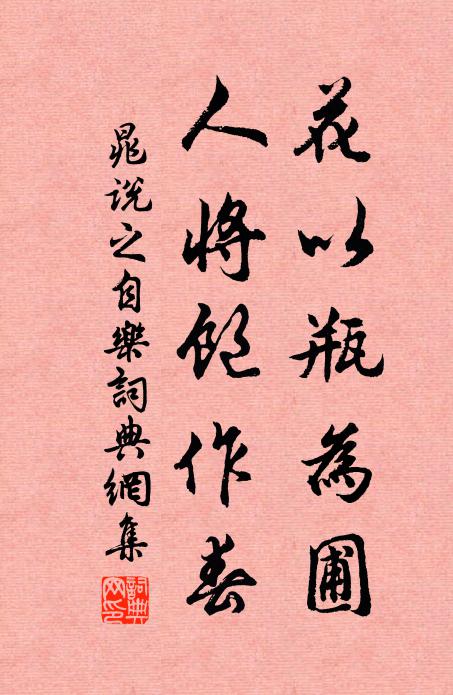 花以瓶為圃
人將飽作春
晁說之自樂詞典網集
詞典网印